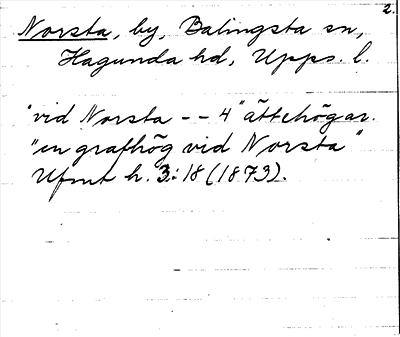 2.
Norsta, by, Balingsta sn,
Hagunda hd, Upps. l.
"vid Norsta - - 4" ättehögar.
"en grafhög vid Norsta"
Ufmt h. 3: 18 (1873).